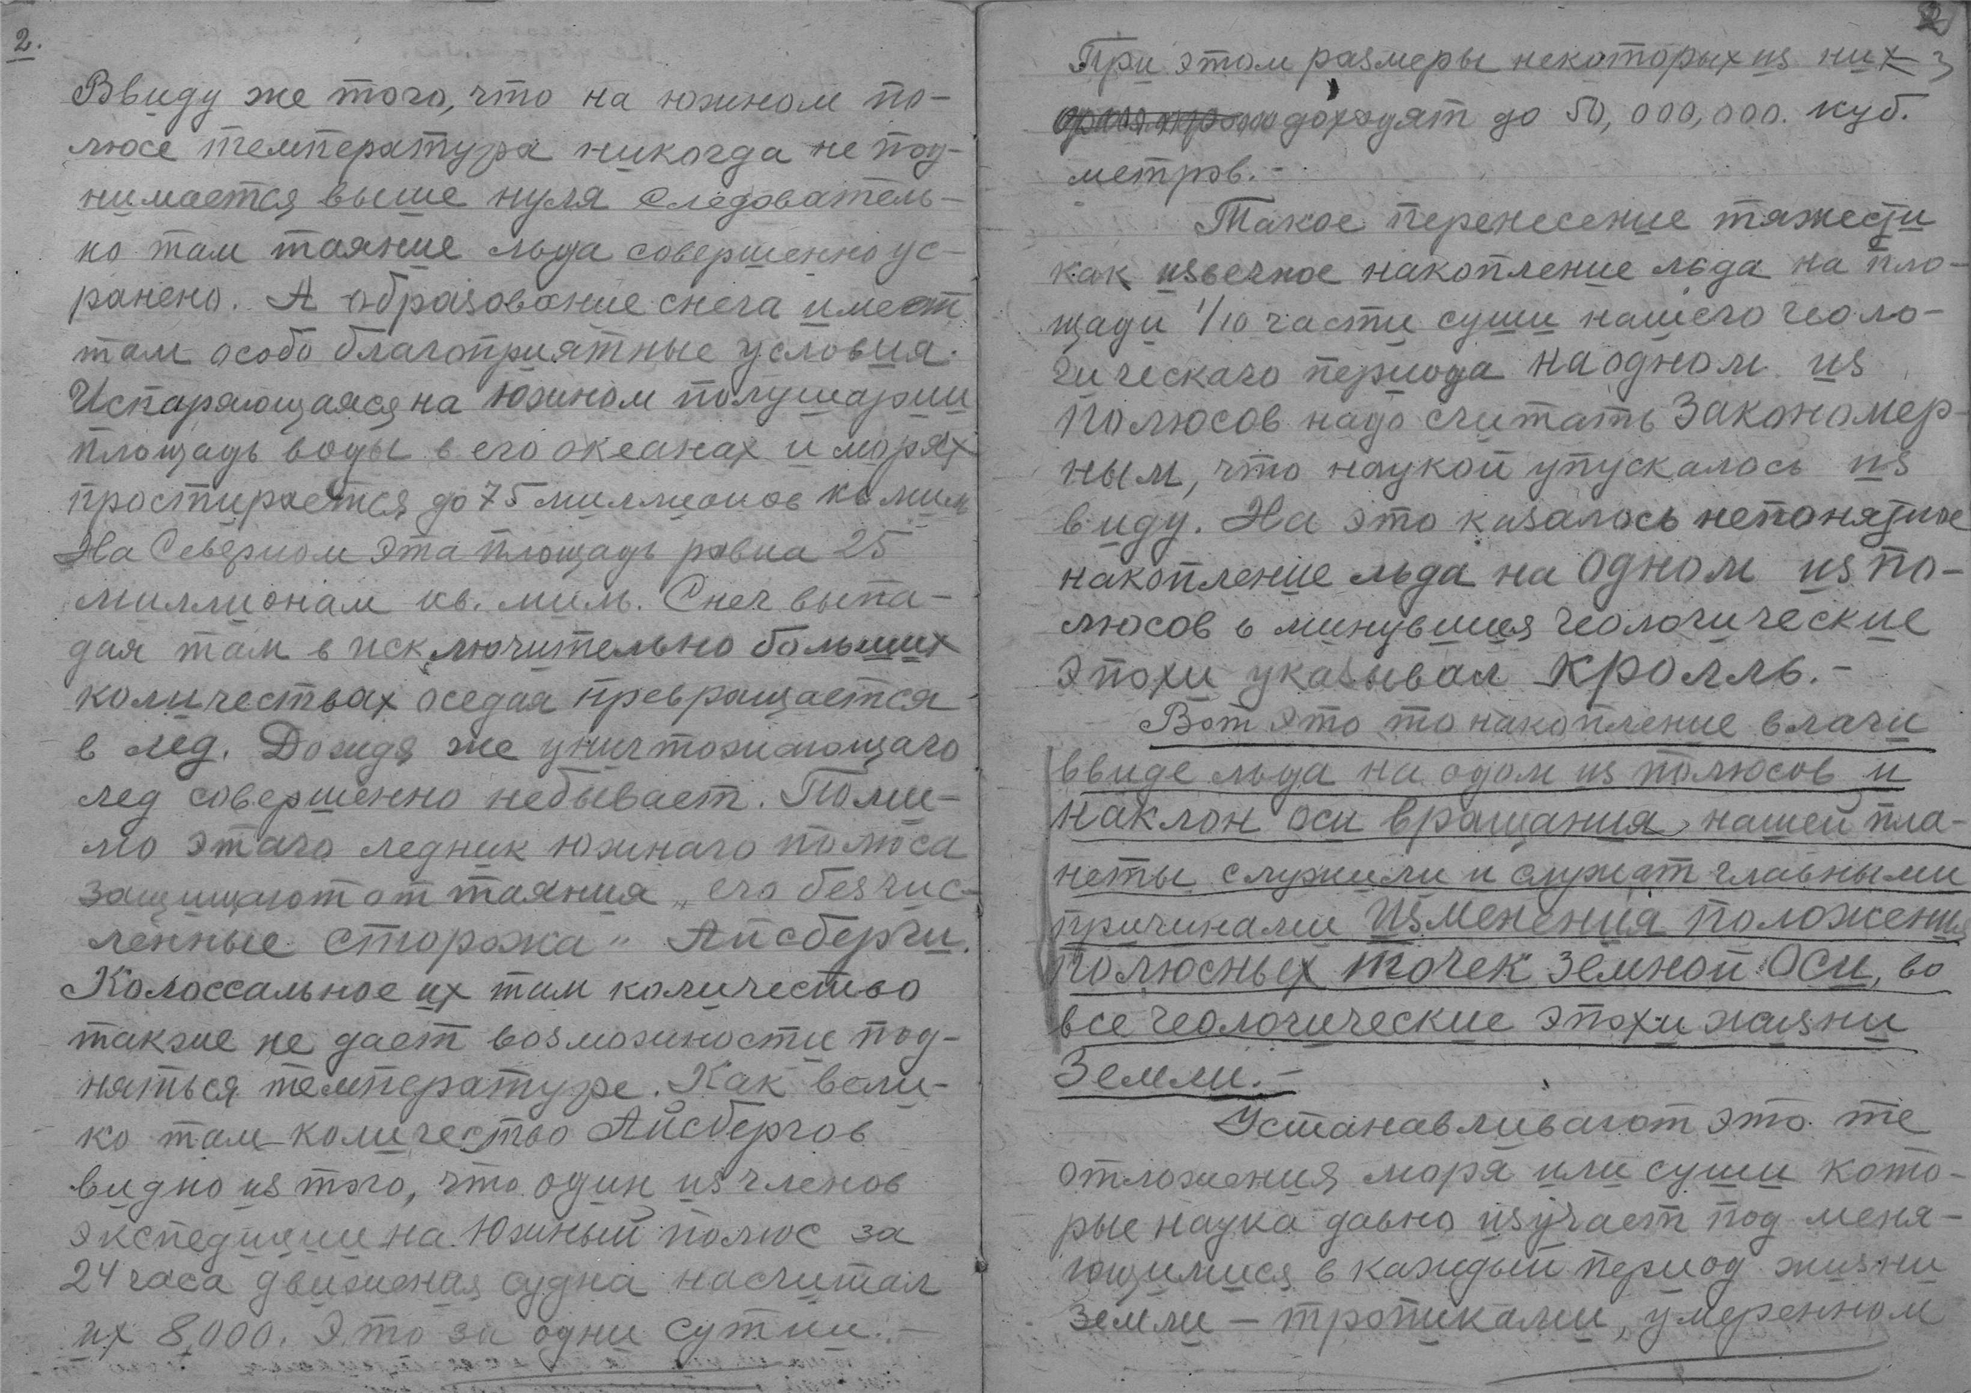 2.
Ввиду же того, что на южном по-
люсе температура никогда не под-
нимается выше нуля следователь-
но там таяние льда совершенно ус-
ранено. А образование снега имеет
там особо благоприятные условия.
Испаряющаяся на южном полушарии
площадь воды в его океанах и морях
простирается до 75 миллионов кв мил
На Северном эта площадь равна 25
миллионам кв. миль. Снег выпа-
дая там в исключительно больших
количествах оседая превращается
в лед. Дождя же уничтожающаго
лед совершенно небывает. Поми-
мо этаго ледник южнаго полюса
защищают от таяния „его безчис-
ленные сторожа" Айсберги.
Колоссальное их там количество
также не дает возможности под-
няться температуре. Как вели-
ко там количество Айсбергов
видно из того, что один из членов
экспедиции на Южный полюс за
24 часа движения судна насчитал
их 8,000. Это за одни сутки.-
При этом размеры некоторых из них
доходят до 50,000,000. куб.
метров.-
Такое перенесение тяжести
как извечное накопление льда на пло-
щади 1/10 части суши нашего геоло-
гическаго периода на одном из
полюсов надо считать закономер-
ным, что наукой упускалось из
виду. На это казалось непонятное
накопление льда на одном из по-
люсов в минувшия геологические
эпохи указывал Кролль.-
Вот это то накопление влаги
ввиде льда на одом из полюсов и
наклон оси вращания нашей пла-
неты служили и служат главными
причинами изменения положения
полюсных точек земной оси, во
все геологические эпохи жизни
Земли.-
Устанавливают это те
отложения моря или суши кото-
рые наука давно изучает под меня-
ющимися в каждый период жизни
земли - тропиками, умеренном